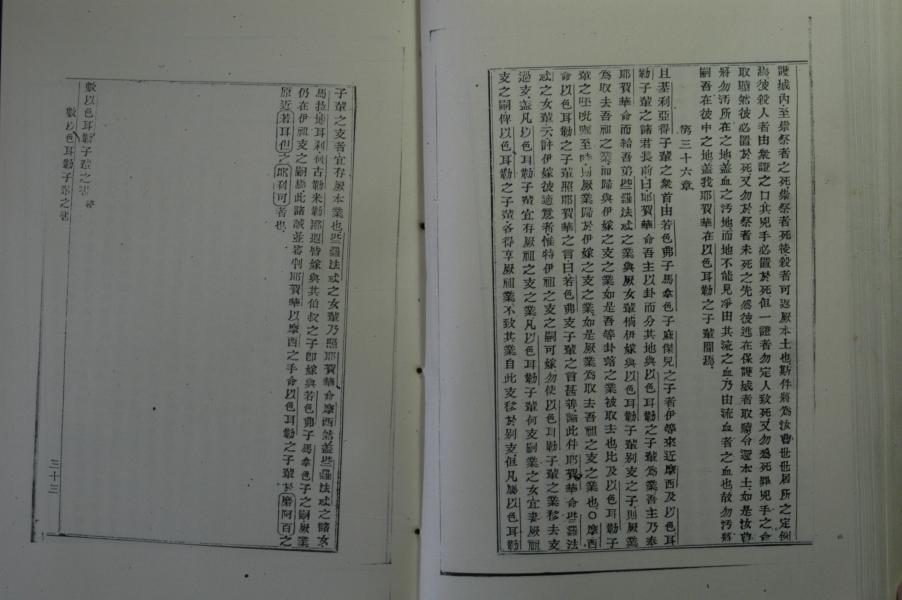 護城內至崇祭者之死崇祭者死後殺者可返厥本土也斯件將為汝曹世世居所之定例
為彼殺人者由衆證之口其兇手必置於死但一證者勿定人致死又勿為死罪兇手之命
取贖然彼必置於死又勿於祭者未死之先為彼逃在保護城者取贖令還本土如是汝曹
將勿汚所在之地蓋血之汚地而地不能見凈由其流之血乃由流血者之血也故勿汚爾
嗣吾在彼中之地蓋我耶賀華在以色耳勒之子輩間焉
第三十六章
且基利亞得子輩之衆首由若色弗子馬拿色子麻保兒之子者伊等來近摩西及以色耳
勒子輩之諸君長前曰耶賀華命吾主以卦而分其地與以色耳勒之子輩為業吾主乃奉
耶賀華命而給吾弟些羅法忒之業與厥女輩倘伊嫁與以色耳勒子輩別支之子則厥業
為取去吾祖之業而歸與伊嫁之支之業如是吾等卦落之業被取去也比及以色耳勒子
輩之呸吪囇至時則厥業歸於伊嫁之支之業如是厥業為取去吾祖之支之業也○摩西
命以色耳勒之子輩照耶賀華之言曰若色弗支子輩之言甚善論此件耶賀華命些羅法
忒之女輩云許伊嫁彼適意者惟特伊祖之支之嗣可嫁勿使以色耳勒子輩之業移去支
過支蓋凡以色耳勒子輩宜存厥祖之支之業凡以色耳勒子輩何支嗣業之女宜妻厥祖
支之嗣俾以色耳勒之子輩各得享厥祖業不致其業自此支移於別支但凡屬以色耳勒
子輩之支者宜存厥本業也些羅法忒之女輩乃照耶賀華命摩西然蓋些羅法忒之諸女
馬拉地耳利何古勒米勒耶迦皆嫁與其伯叔之子即嫁與若色弗子馬拿色子之嗣厥業
仍在伊祖支之嗣焉此諸誡並審判耶賀華以摩西之手命以色耳勒之子輩於磨阿百之
原近若耳但之耶利可者也
數以色耳勒子輩之書
數以色耳勒子輩之書
三十三